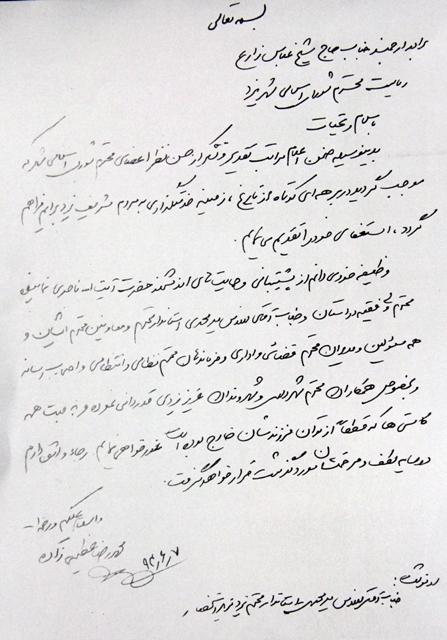 بسمه تعالی
برادر ارجمند جناب حاج شیخ عباس زارع
ریاست محترم شورای اسلامی شهر یزد
با سلام و تحیات
بدینوسیله ضمن اعلام مراتب تقدیر و تشکر از حسن نظر اعضای محترم شورای اسلامی شهر که
موجب گردید در برهه‌ای کوتاه از تاریخ، زمینه خدمتگزاری به مردم شریف یزد برایم فراهم
گردد، استعفای خود را تقدیم می نمایم.
وظیفه خود می دانم از پشتیبانی و حمایت های ارزشمند حضرت آیت اله ناصری نماینده
محترم ولی فقیه در استان و جناب آقای مهندس میرمحمدی استاندار محترم و معاونین محترم ایشان و
همه مسئولین و مدیران محترم قضائی و اداری و فرماندهان محترم نظامی و انتظامی و اصحاب رسانه
و بخصوص همکاران محترم شهرداری و شهروندان عزیز یزدی قدردانی نموده و بابت همه
کاستی ها که قطعاً از توان فرزندشان خارج بوده است عذرخواهی نمایم. رجاء واثق دارم
در سایه لطف و مرحمتشان مورد گذشت قرار خواهد گرفت.
والسلام علیکم و رحمة اله
محمدرضا عظیمی زاده
۹۴/۶/۷
رونوشت:
جناب آقای مهندس میرمحمدی استاندار محترم یزد برای استحضار